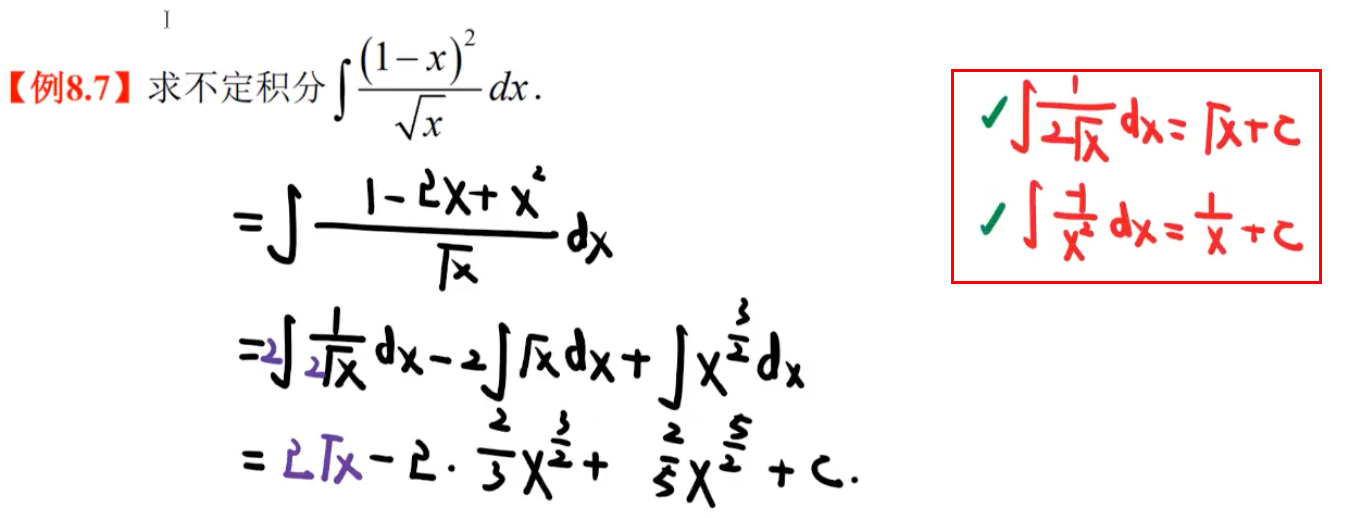 【例8.7】求不定积分∫(1−x)²/√x dx.
=∫(1-2x+x²)/√x dx
=2∫1/(2√x) dx-2∫√x dx+∫x^(3/2) dx
=2√x-2·(2/3)x^(3/2)+(2/5)x^(5/2)+C.
✓∫1/(2√x) dx=√x+C
✓∫-1/x² dx=1/x+C